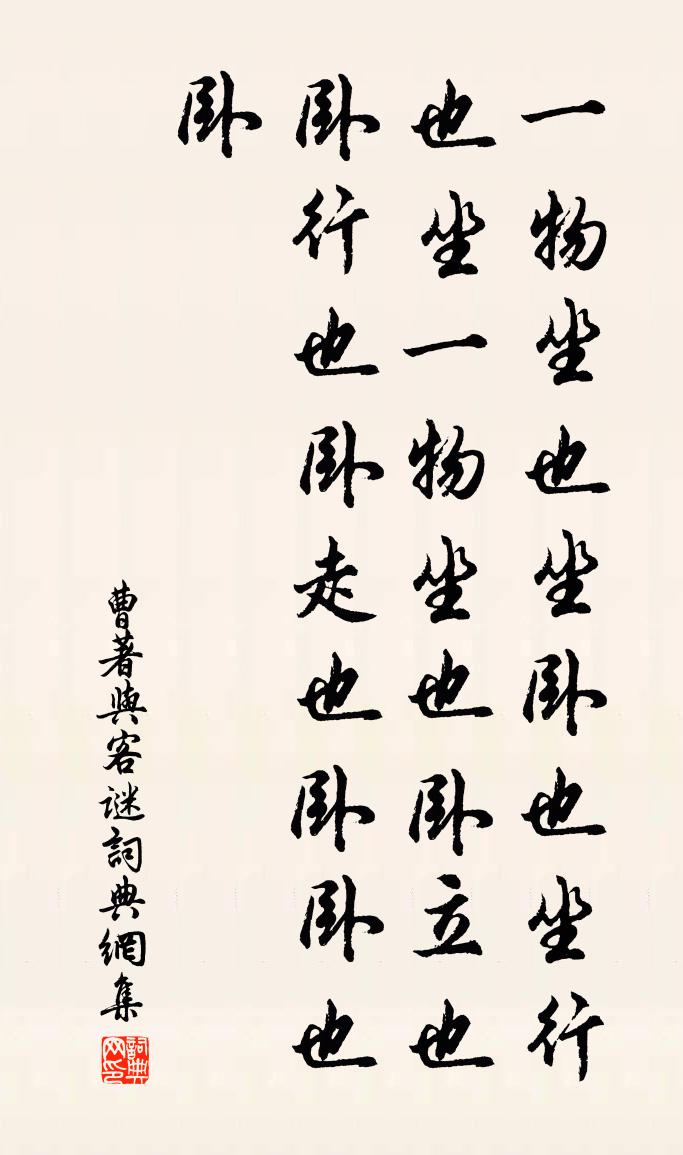 一物坐也坐卧也坐行
也坐一物坐也卧立也
卧行也卧走也卧卧也
卧
曹著與客谜詞典網集
詞典网印